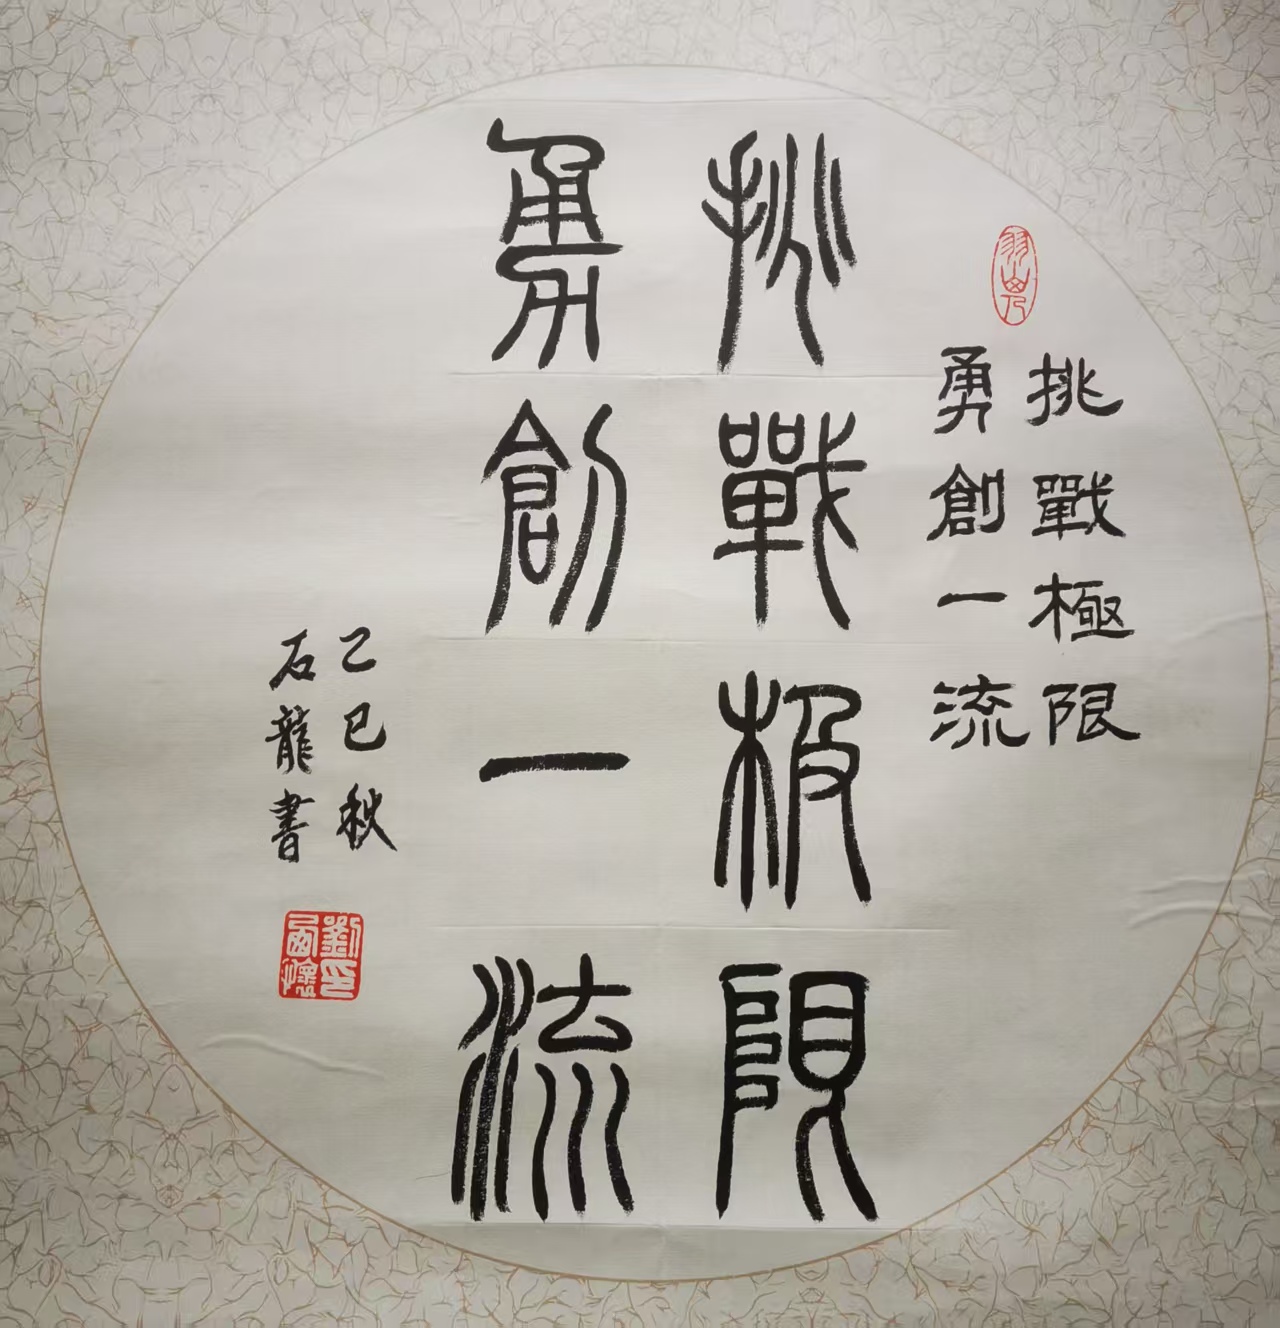 挑戰極限
勇創一流
挑戰极限
勇創一流
乙巳秋
石龍書